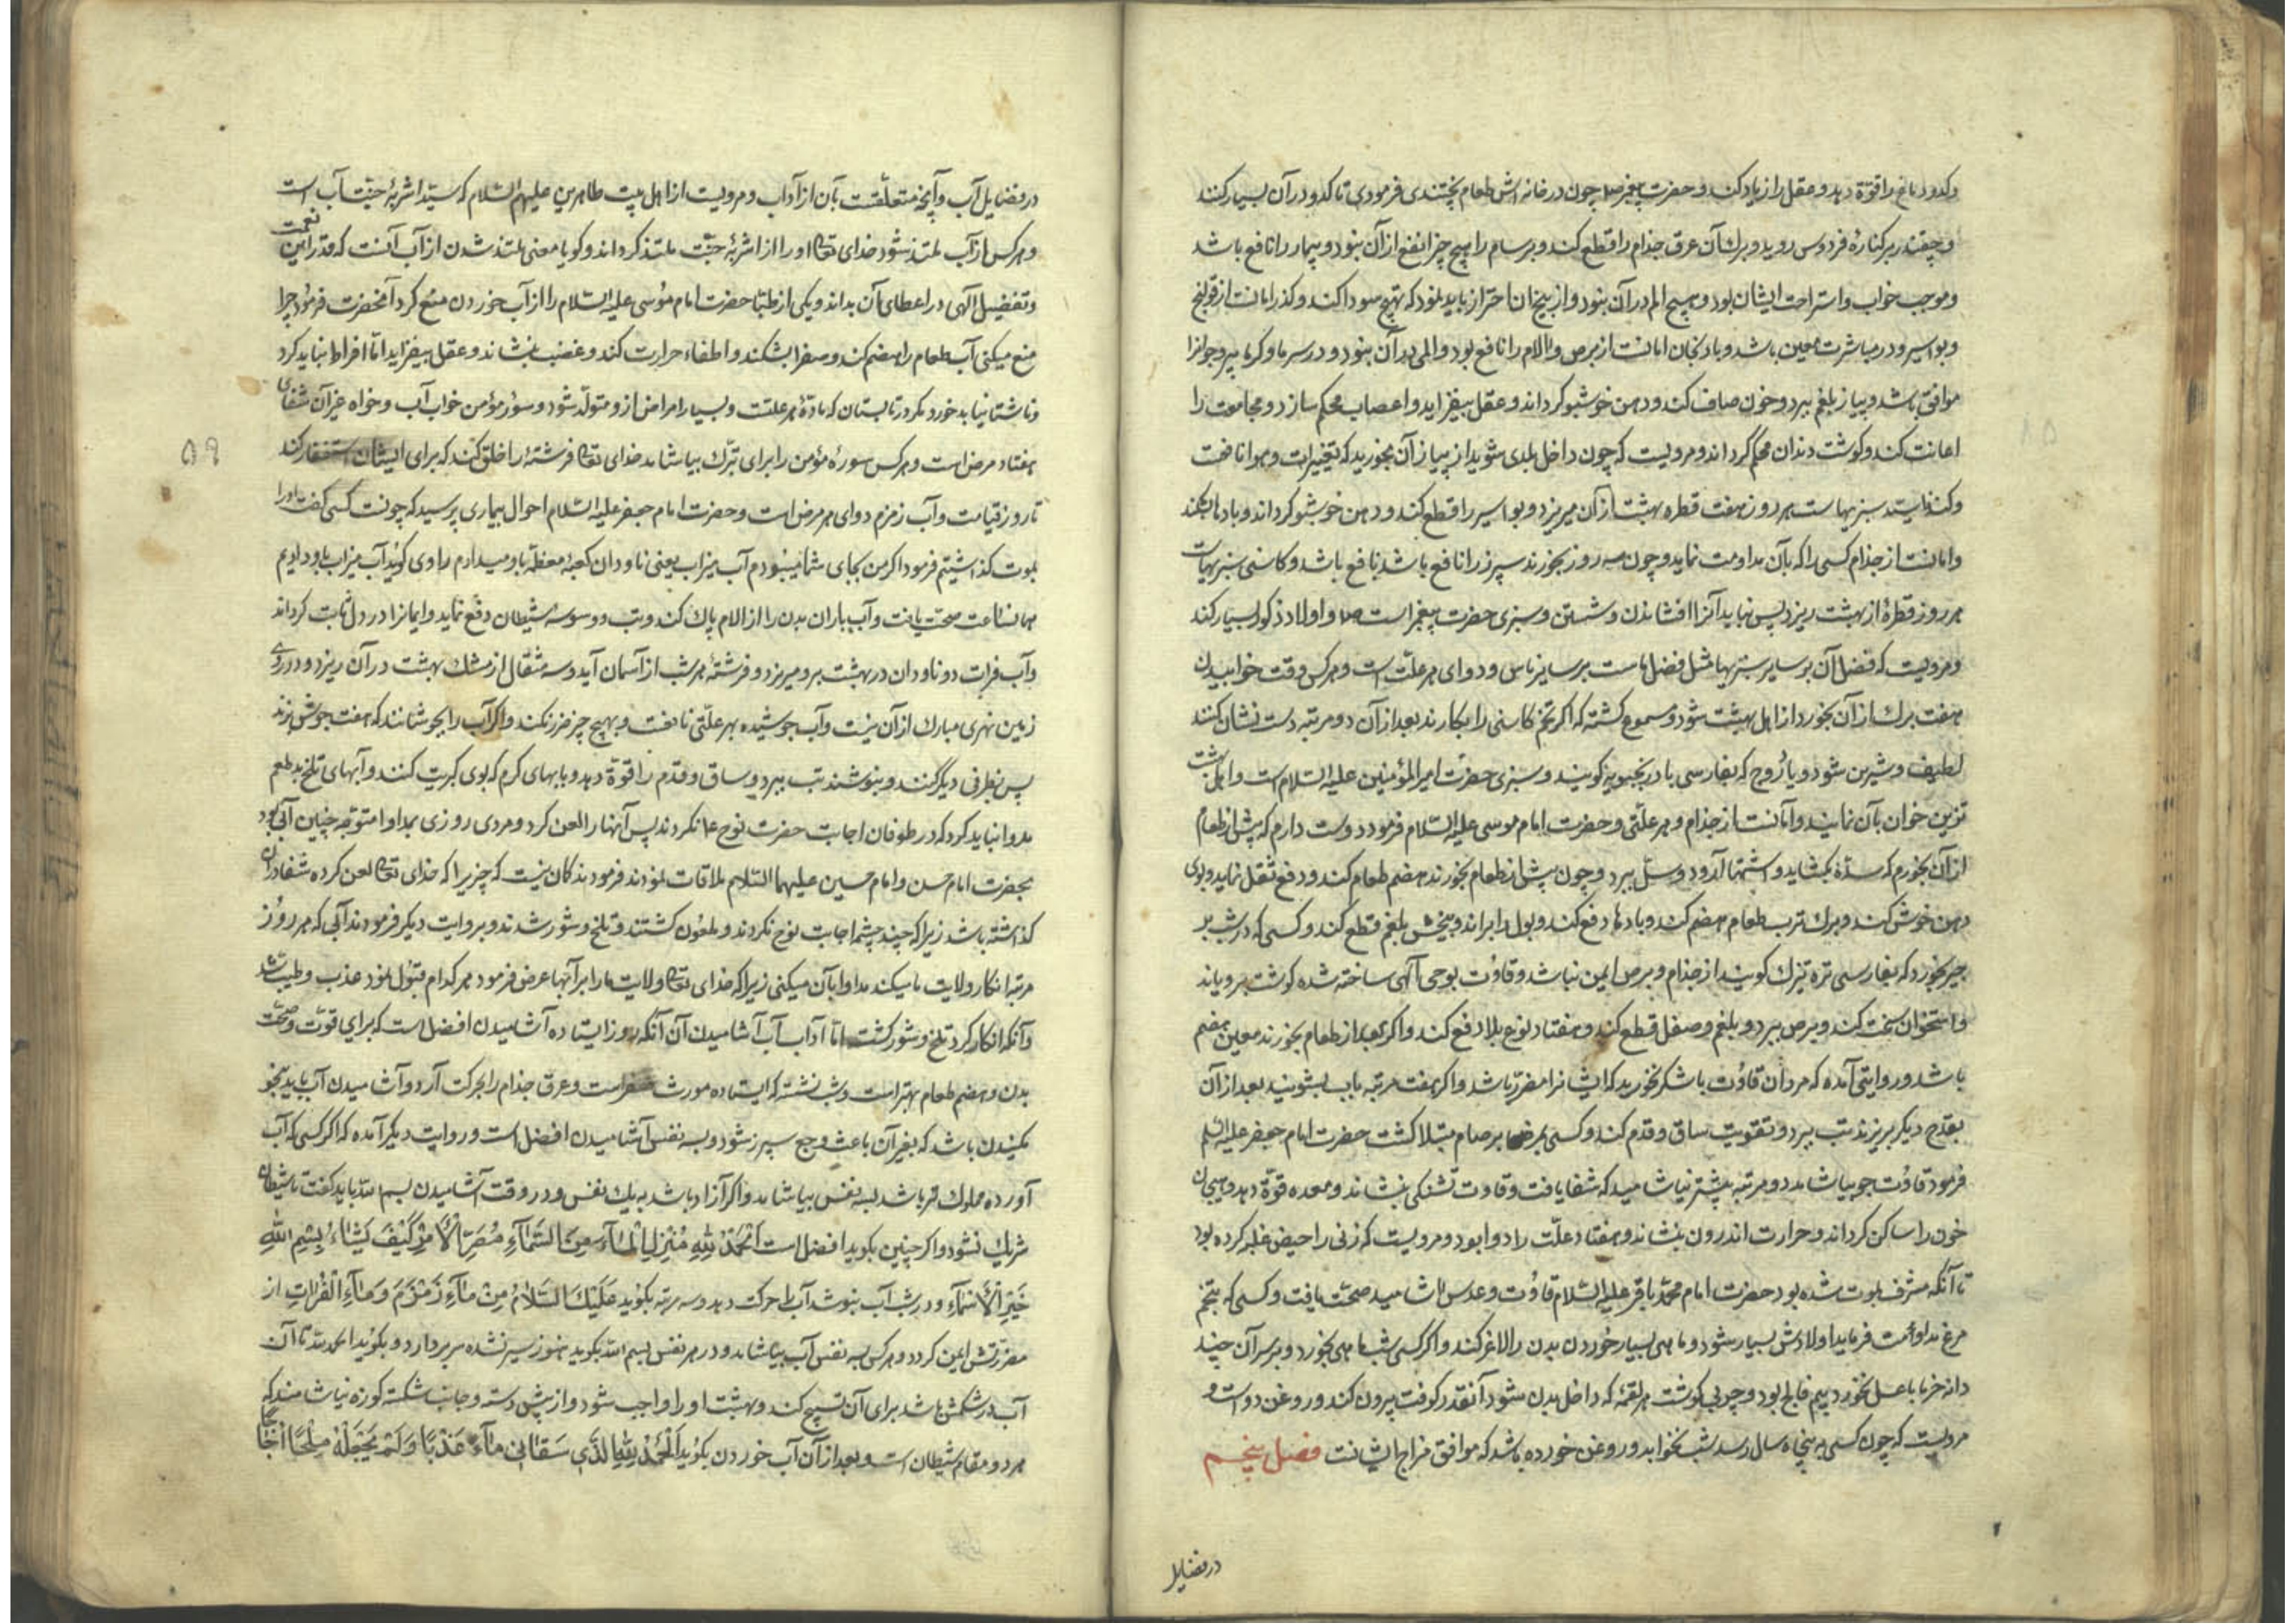 وکدو دماغ را قوّة دهد و عقل را زیاد کند و حضرت پیغمبر ص چون در خانه اش طعام پختندی فرمودی تا کدو در آن بسیار کنند
و چقندر بر کنارهٔ فردوس روید و برك آن عرق جذام را قطع کند و برسام را هیچ چیز انفع از آن نبود و بیمار را نافع باشد
و موجب خواب و استراحت ایشان بود و هیچ الم در آن نبود و از بیخ آن احتراز باید نمود که تهیج سودا کند و کذر امانست از قولنج
و بواسیر و در مباشرت معین باشد و بادنجان امانست از برص و الام را نافع بود و المی در آن نبود و در سرما و کرما پیر و جوانرا
موافق باشد و پیاز بلغم ببرد و خون صاف کند و دهن خوشبو کرداند و عقل بیفزاید و اعصاب محکم سازد و مجامعت را
اعانت کند و کوشت دندان محکم گرداند و مرویست که چون داخل بلدی شوید از پیاز آن بخورید که تغییر اب و هوا نافعست
و کندنا سید سبزیهاست هر روز هفت قطره بهشت از آن میریزد و بواسیر را قطع کند و دهن خوشبو کرداند و بادها بشکند
و امانست از جذام کسی را که بآن مداومت نماید و چون سه روز بخورند سپرز را نافع باشد نافع باشد و کاسنی سبزیهاست
هر روز قطرهٔ از بهشت ریزد پس نباید آنرا افشاندن و شستن و سبزی حضرت پیغمبر است ص و اولاد ذکور بسیار کند
و مرویست که فضل آن بر سایر سبزیها مثل فضل ماست بر سایر ناس و دوای هر علّت است و هر کس وقت خوابیدن
هفت برك از آن بخورد از اهل بهشت شود و مسموع کشته که اکر تخم کاسنی را بکارند بعد از آن دو مرتبه دست نشان کنند
لطیف و شیرین شود و باذروج که بفارسی بادرنجبویه کویند و سبزی حضرت امیر المؤمنین علیه السلام است و اهل بهشت
تزیین خوان بآن نمایند و امانست از جذام و هر علّتی و حضرت امام موسی علیه السلام فرمود دوست دارم که پیش از طعام
از آن بخورم که سدّهٔ بکشاید و اشتها آرد و سلّ ببرد و چون پیش از طعام بخورند هضم طعام کند و دفع ثقل نماید و بوی
دهن خوش کند و برك ترب طعام هضم کند و بادها دفع کند و بول را براند و بیخش بلغم قطع کند و کسی که در شب بر
جیر بخورد که بفارسی تره تیزك کویند از جذام و برص ایمن نباشد و قاؤت بوحی الهی ساخته شده کوشت برویاند
و استخوان سخت کند و برص ببرد و بلغم و صفل قطع کند و هفتاد نوع بلا دفع کند و اکر بعد از طعام بخورند معین هضم
باشد و روایتی آمده که مردان قاؤت با شکر نخورید که ایشانرا مضرّ باشد و اکر هفت مرتبه باب بشویند بعد از آن
بقدح دیکر بریزند تب ببرد و تقویت ساق و قدم کند و کسی بمرض برصام مبتلا کشت حضرت امام جعفر علیه السلم
فرمود قاؤت جو بیاشامد دو مرتبه بیشتر نیاشامید که شفا یافت و قاوت تشنکی بنشاند و معده قوّة دهد و هیجان
خون را ساکن کرداند و حرارت اندرون بنشاند و هفتاد علّت را دوا بود و مرویست که زنی را حیض غلبه کرده بود
تا آنکه مشرف بموت شده بود حضرت امام محمّد باقر علیه السلام قاؤت و عدس اشامید صحّت یافت و کسی که بتخم
مرغ مداومت فرماید اولادش بسیار شود و ماهی بسیار خوردن بدن را لاغر کند و اکر کسی شب ماهی بخورد و بر سر آن چند
دانه خرما یا عسل نخورد بیم فالج بود و چربی کوشت هر لقمه که داخل بدن شود آنقدر کوفت بیرون کند و روغن دواست و
مرویست که چون کسی به پنجاه سال رسد شب نخوابد و روغن خورده باشد که موافق مزاج ایشانست فصل پنجم
در فضایل
در فضایل آب و آنچه متعلّقست بآن از آداب و مرویست از اهل بیت طاهرین علیهم السلام که سیّد اشربهٔ جنّت آب است
و هر کس از آب ملتذ شود خدای تعالی او را از اشربهٔ جنّت ملتذ کرداند و کویا معنی ملتذ شدن از آب آنست که قدر این نعمت
و تفضیل الهی در اعطای آن بداند و یکی از اطبّا حضرت امام مؤسی علیه السلام را از آب خوردن منع کرد آنحضرت فرمود چرا
منع میکنی آب طعام را هضم کند و صفرا بشکند و اطفاء حرارت کند و غضب بنشاند و عقل بیفزاید امّا افراط نباید کرد
و ناشتا نباید خورد مکر در تابستان که مادّهٔ هر علتست و بسیار امراض از و متولّد شود و سؤر مؤمن خواب آب و خواه غیر آن شفای
هفتاد مرض است و هر کس سورهٔ مؤمن را برای تبرّك بیاشامد خدای تعالی فرشتهٔ را خلق کند که برای ایشان استغفار کند
۵۹
تا روز قیامت و آب زمزم دوای هر مرض است و حضرت امام جعفر علیه السلام احوال بیماری پرسید که چونست کسی کفت او را
بموت کذاشتیم فرمود اکر من بجای شما میبودم آب میزاب یعنی ناودان کعبهٔ معظّمه باو میدادم راوی کوید آب میزاب باو دادیم
همانساعت صحّت یافت و آب باران بدن را از الام پاك کند و تب و وسوسه شیطان دفع نماید و ایمانرا در دل ثابت کرداند
و آب فرات دو ناودان در بهشت برو میریزد و فرشتهٔ هر شب از آسمان آید و سه مثقال از مشك بهشت در آن ریزد و در روی
زمین نهری مبارك از آن نیست و آب جوشیده بهر علّتی نافعست و بهیچ چیز ضرر نکند و اکر آب را بجوشانند که هفت جوش بزند
پس بظرفی دیگر کنند و بنوشند تب ببرد و ساق و قدم را قوّة دهد و بابهای کرم که بوی کبریت کنند و آبهای تلخ بد طعم
مدوا نباید کرد که در طوفان اجابت حضرت نوح ع نکردند پس آنها را لعن کرد و مردی روزی بمداوا متوجّه چنین آبی بود
بحضرت امام حسن و امام حسین علیهما السّلام ملاقات نمودند فرمودند کان نیست که چیزیرا که خدای تعالی لعن کرده شفا در آن
کذاشته باشد زیرا که چند چشم اجابت نوح نکردند و ملعون کشتند و تلخ و شور شدند و بروایت دیکر فرمودند آبی که هر روز
مرتبه انکار ولایت ما میکند مداوا بآن میکنی زیرا که خدای تعالی ولایت ما را بر آبها عرض فرمود هر کدام قبول نمود عذب و طیّب شد
و آنکه انکار کرد تلخ و شور کشت امّا آداب آب آشامیدن آن آنکه روز ایستاده آشامیدن افضل است که برای قوّت و صحّت
بدن و هضم طعام بهتر است و شب نشسته که ایستاده مورث صفراست و عرق جذام را بحرکت آرد و آشامیدن آب باید بنحو
مکیدن باشد که بغیر آن باعث وجع سپرز شود و بسه نفس آشامیدن افضل است و روایت دیکر آمده که اکر کسی که آب
آورده مملوك تو باشد بسه نفس بیاشامد و اکر آزاد باشد به یك نفس و در وقت آشامیدن بسم الله باید کفت تا شیطان
شریك نشود و اکر چنین بکوید افضل است اَلْحَمْدُ لِلّٰهِ مُنْزِلِ الْمٰاءِ مِنَ السَّمٰاءِ مُصَرِّفِ الْاَمْرِ كَیْفَ یَشٰاءُ بِسْمِ اللهِ
خَیْرِ الْاَسْمٰاءِ و در شب آب بنوشد آب را حرکت دهد و سه مرتبه بکوید عَلَیْكَ السَّلامُ مِنْ مٰاءِ زَمْزَمَ وَ مٰاءِ الْفُرٰاتِ از
مضرّتش ایمن کردد و هر کس بسه نفس آب بیاشامد و در هر نفس بسم الله بکوید هنوز سیر نشده سر بردارد و بکوید الحمد لله تا آن
آب در شکمش باشد برای آن تسبیح کند و بهشت او را واجب شود و از پیش دسته و جانب شکسته کوزه نیاشامند که
هر دو مقام شیطان است و بعد از آن آب خوردن بکوید اَلْحَمْدُ لِلّٰهِ الَّذِی سَقٰانِی مٰاءً عَذْبًا وَ لَمْ یَجْعَلْهُ مِلْحًا اُجٰاجًا